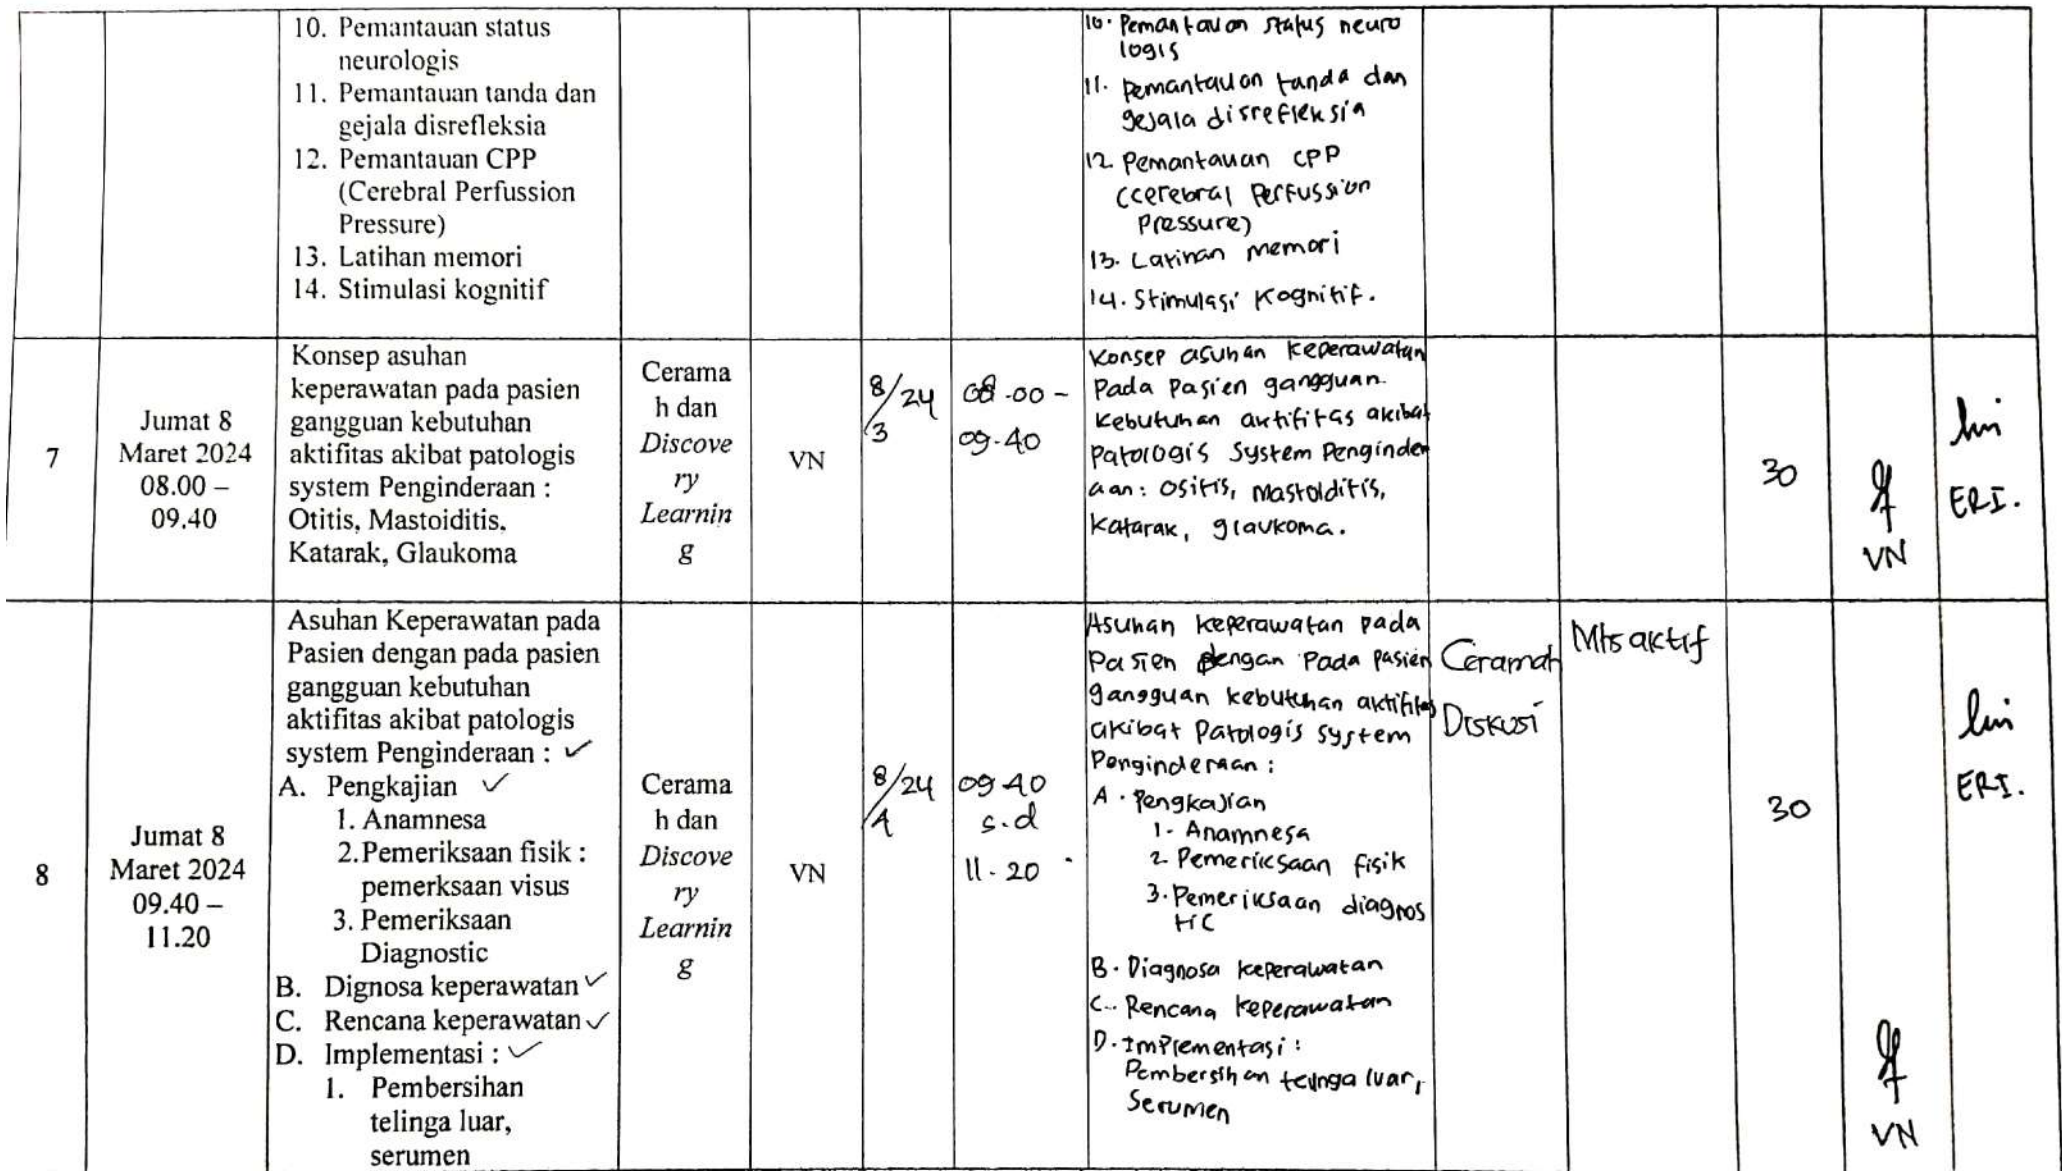 10. Pemantauan status
neurologis
11. Pemantauan tanda dan
gejala disrefleksia
12. Pemantauan CPP
(Cerebral Perfussion
Pressure)
13. Latihan memori
14. Stimulasi kognitif
10. Pemantauan status neuro
logis
11. Pemantauan tanda dan
gejala disrefleksia
12. Pemantauan CPP
(cerebral Perfussion
Pressure)
13. Latihan memori
14. Stimulasi Kognitif.
7
Jumat 8
Maret 2024
08.00 –
09.40
Konsep asuhan
keperawatan pada pasien
gangguan kebutuhan
aktifitas akibat patologis
system Penginderaan :
Otitis, Mastoiditis,
Katarak, Glaukoma
Cerama
h dan
Discove
ry
Learnin
g
VN
8/3/24
08.00 –
09.40
Konsep asuhan keperawatan
pada pasien gangguan
kebutuhan aktifitas akibat
patologis system Penginder
aan : Ositis, mastoiditis,
Katarak, glaukoma.
30
VN
ERI.
8
Jumat 8
Maret 2024
09.40 –
11.20
Asuhan Keperawatan pada
Pasien dengan pada pasien
gangguan kebutuhan
aktifitas akibat patologis
system Penginderaan : ✓
A. Pengkajian ✓
1. Anamnesa
2. Pemeriksaan fisik :
pemerksaan visus
3. Pemeriksaan
Diagnostic
B. Dignosa keperawatan ✓
C. Rencana keperawatan ✓
D. Implementasi : ✓
1. Pembersihan
telinga luar,
serumen
Cerama
h dan
Discove
ry
Learnin
g
VN
8/24
09.40
s.d
11.20
Asuhan keperawatan pada
Pasien dengan pada pasien
gangguan kebutuhan aktifitas
akibat Patologis system
Penginderaan :
A. Pengkajian
1. Anamnesa
2. Pemeriksaan fisik
3. Pemeriksaan diagnos
tic
B. Diagnosa keperawatan
C. Rencana keperawatan
D. Implementasi :
Pembersihan telinga luar,
Serumen
Ceramah
Diskusi
Mhs aktif
30
VN
ERI.